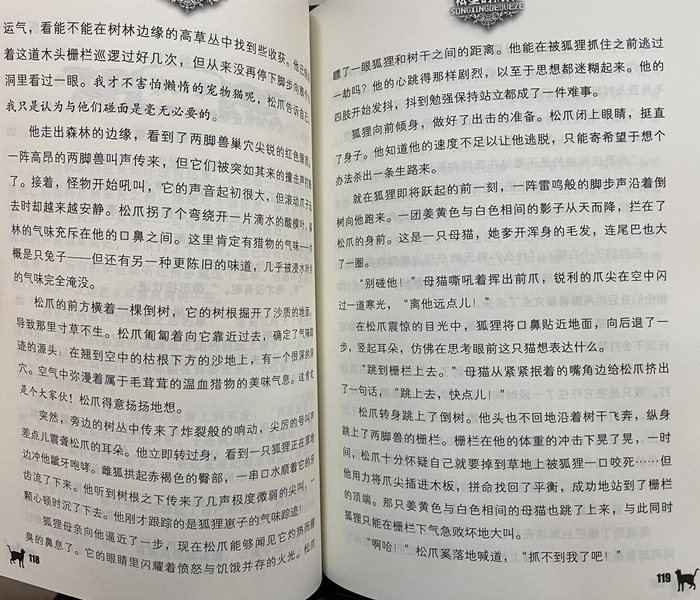 运气，看能不能在树林边缘的高草丛中找到些收获。他已经沿
着这道木头栅栏巡逻过好几次，但从来没再停下脚步向那个小
洞里看过一眼。我才不害怕懒惰的宠物猫呢，松爪告诉自己，
我只是认为与他们碰面是毫无必要的。
他走出森林的边缘，看到了两脚兽巢穴尖锐的红色屋顶。
一阵高昂的两脚兽叫声传来，但它们被突如其来的撞击声打断
了。接着，怪物开始吼叫，它的声音起初很大，但滚动爪子远
去时却越来越安静。松爪拐了个弯绕开一片滴水的酸模叶，森
林的气味充斥在他的口鼻之间。这里肯定有猎物的气味——大
概是只兔子——但还有另一种更陈旧的味道，几乎被浸水树叶
的气味完全淹没。
松爪的前方横着一棵倒树，它的树根掘开了沙质的地面，
导致那里寸草不生。松爪匍匐着向它靠近过去，确定了气味踪
迹的源头：在翘到空中的枯根下方的沙地上，有一个很深的洞
穴。空气中弥漫着属于毛茸茸的温血猎物的美味气息。这肯定
是个大家伙！松爪得意扬扬地想。
突然，旁边的树丛中传来了炸裂般的响动，尖厉的号叫声
差点儿震聋松爪的耳朵。他立即转过身，看到一只狐狸正在草地
边冲他龇牙咆哮。雌狐拱起赤褐色的臀部，一串口水顺着它的牙
齿流了下来。他听到树根之下传来了几声极度微弱的尖叫，一
颗心顿时沉了下去。他刚才跟踪的是狐狸崽子的气味踪迹！
狐狸母亲向他逼近了一步，现在松爪能够闻见它灼热而腥
臭的鼻息了。它的眼睛里闪耀着愤怒与饥饿并存的火光。松爪
118
SONGXINGDEJUEZE
瞟了一眼狐狸和树干之间的距离。他能在被狐狸抓住之前逃过
一劫吗？他的心跳得那样剧烈，以至于思想都迷糊起来。他的
四肢开始发抖，抖到勉强保持站立都成了一件难事。
狐狸向前倾身，做好了出击的准备。松爪闭上眼睛，挺直
了身子。他知道他的速度不足以让他逃脱，只能寄希望于想个
办法杀出一条生路来。
就在狐狸即将跃起的前一刻，一阵雷鸣般的脚步声沿着倒
树向他跑来。一团姜黄色与白色相间的影子从天而降，拦在了
松爪的身前。这是一只母猫，她奓开浑身的毛发，连尾巴也大
了一圈。
“别碰他！”母猫嘶吼着挥出前爪，锐利的爪尖在空中闪
过一道寒光，“离他远点儿！”
在松爪震惊的目光中，狐狸将口鼻贴近地面，向后退了一
步，竖起耳朵，仿佛在思考眼前这只猫想表达什么。
“跳到栅栏上去。”母猫从紧紧抿着的嘴角边给松爪挤出
了一句话，“跳上去，快点儿！”
松爪转身跳上了倒树。他头也不回地沿着树干飞奔，纵身
跳上了两脚兽的栅栏。栅栏在他的体重的冲击下晃了晃，一时
间，松爪十分怀疑自己就要掉到草地上被狐狸一口咬死……但
他用力将爪尖插进木板，拼命找回了平衡，成功地站到了栅栏
的顶端。那只姜黄色与白色相间的母猫也跳了上来，与此同时
狐狸只能在栅栏下气急败坏地大叫。
“啊哈！”松爪奚落地喊道，“抓不到我了吧！”
119